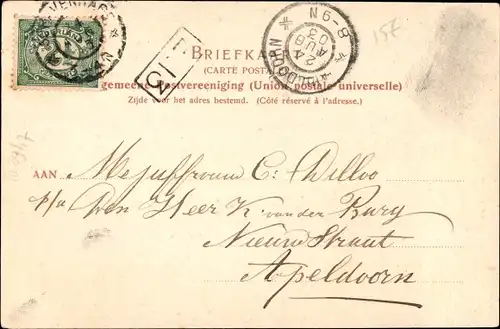 15E
BRIEFKAART
(CARTE POSTALE)
Algemeene Postvereeniging (Union postale universelle)
Zijde voor het adres bestemd. (Côté réservé à l'adresse.)
APELDOORN
8-9N
24
AUG
03
15
AAN Mejuffrouw C. Dilloo
p/a Den Heer K. van der Burg
Nieuw Straat
Apeldoorn